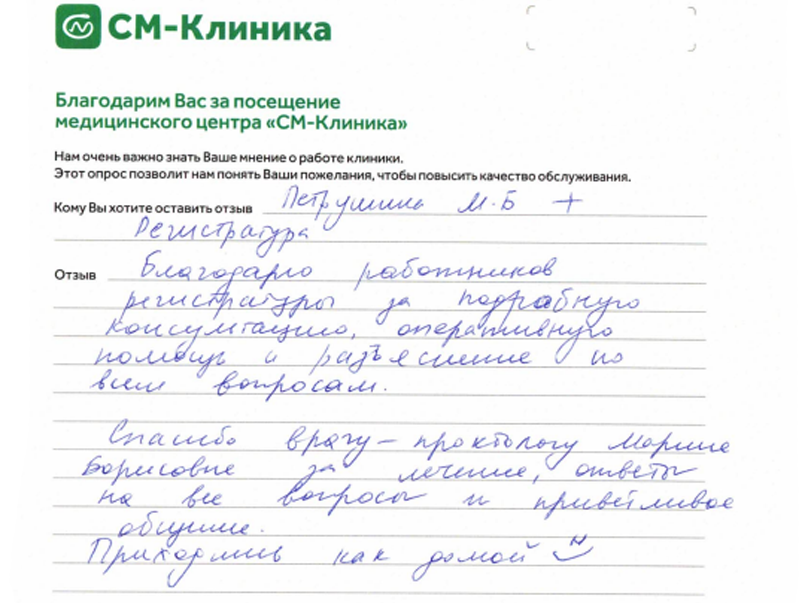 СМ-Клиника
Благодарим Вас за посещение
медицинского центра «СМ-Клиника»
Нам очень важно знать Ваше мнение о работе клиники.
Этот опрос позволит нам понять Ваши пожелания, чтобы повысить качество обслуживания.
Кому Вы хотите оставить отзыв Петрушина М.Б +
Регистратура
Отзыв Благодарю работников
регистратуры за подробную
консультацию, оперативную
помощь и разъяснение по
всем вопросам.
Спасибо врачу - проктологу Марине
Борисовне за лечение, ответы
на все вопросы и приветливое
общение.
Приходишь как домой